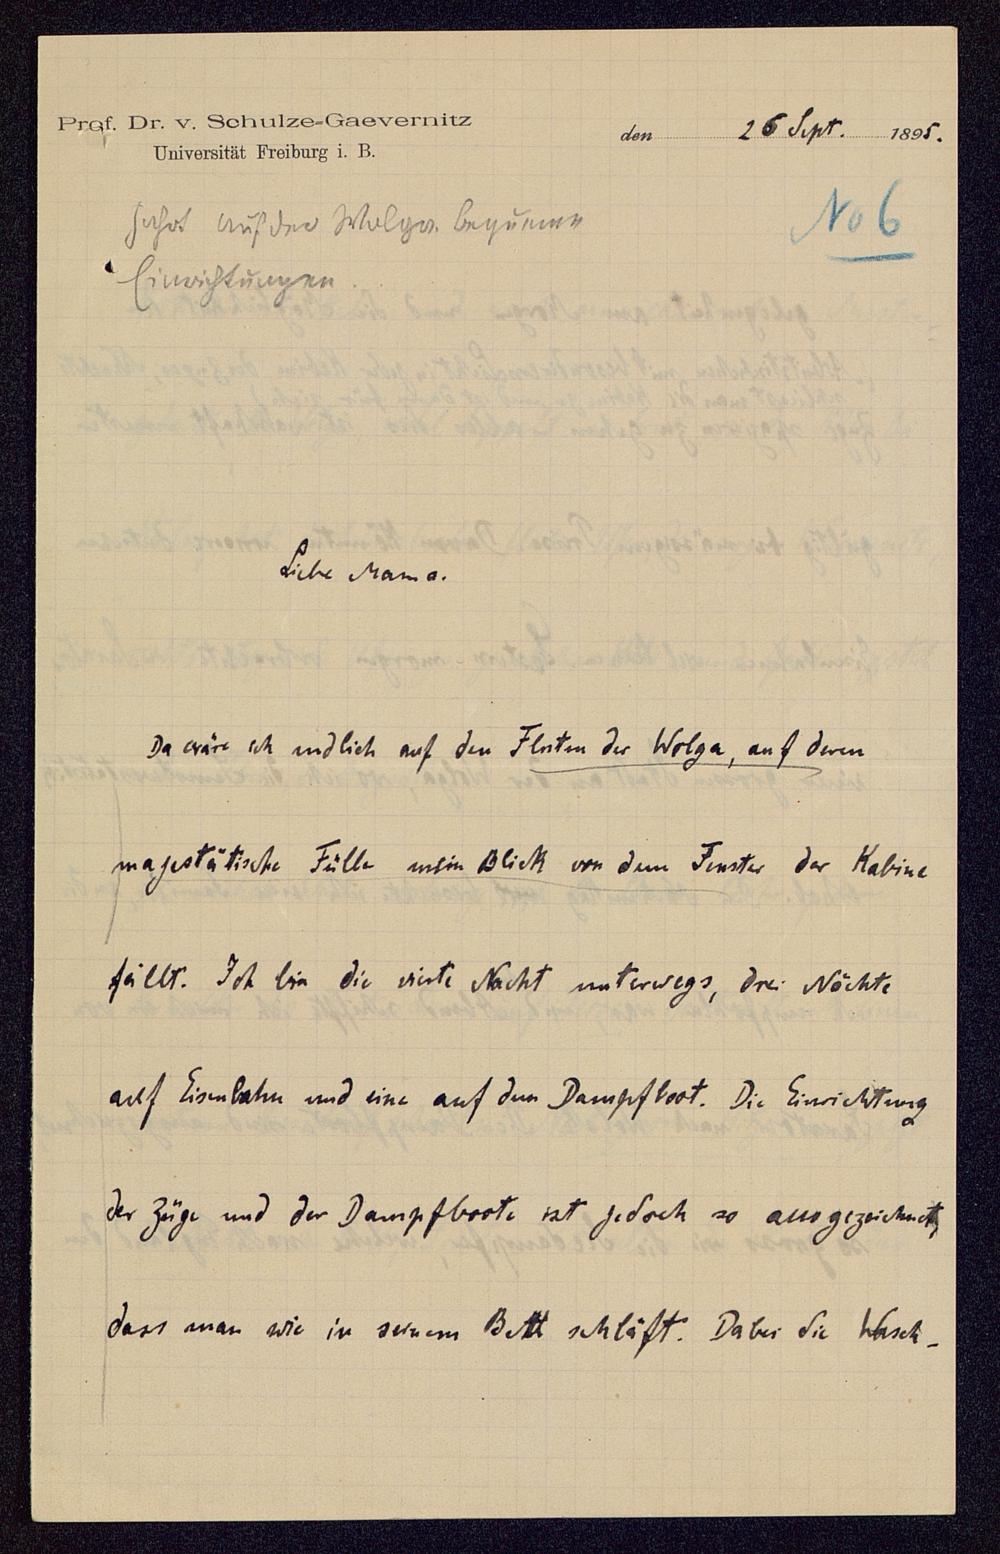 Prof. Dr. v. Schulze-Gaevernitz
Universität Freiburg i. B.
den 26 Sept. 1895.
No 6
Fahrt auf der Wolga. bequeme
Einrichtungen.
Liebe Mama.
Da wäre ich endlich auf den Fluten der Wolga, auf deren
majestätische Fülle mein Blick von dem Fenster der Kabine
fällt. Ich bin die vierte Nacht unterwegs, drei Nächte
auf Eisenbahn und eine auf dem Dampfboot. Die Einrichtung
der Züge und der Dampfboote ist jedoch so ausgezeichnet,
dass man wie in seinem Bett schläft. Dabei die Wasch-